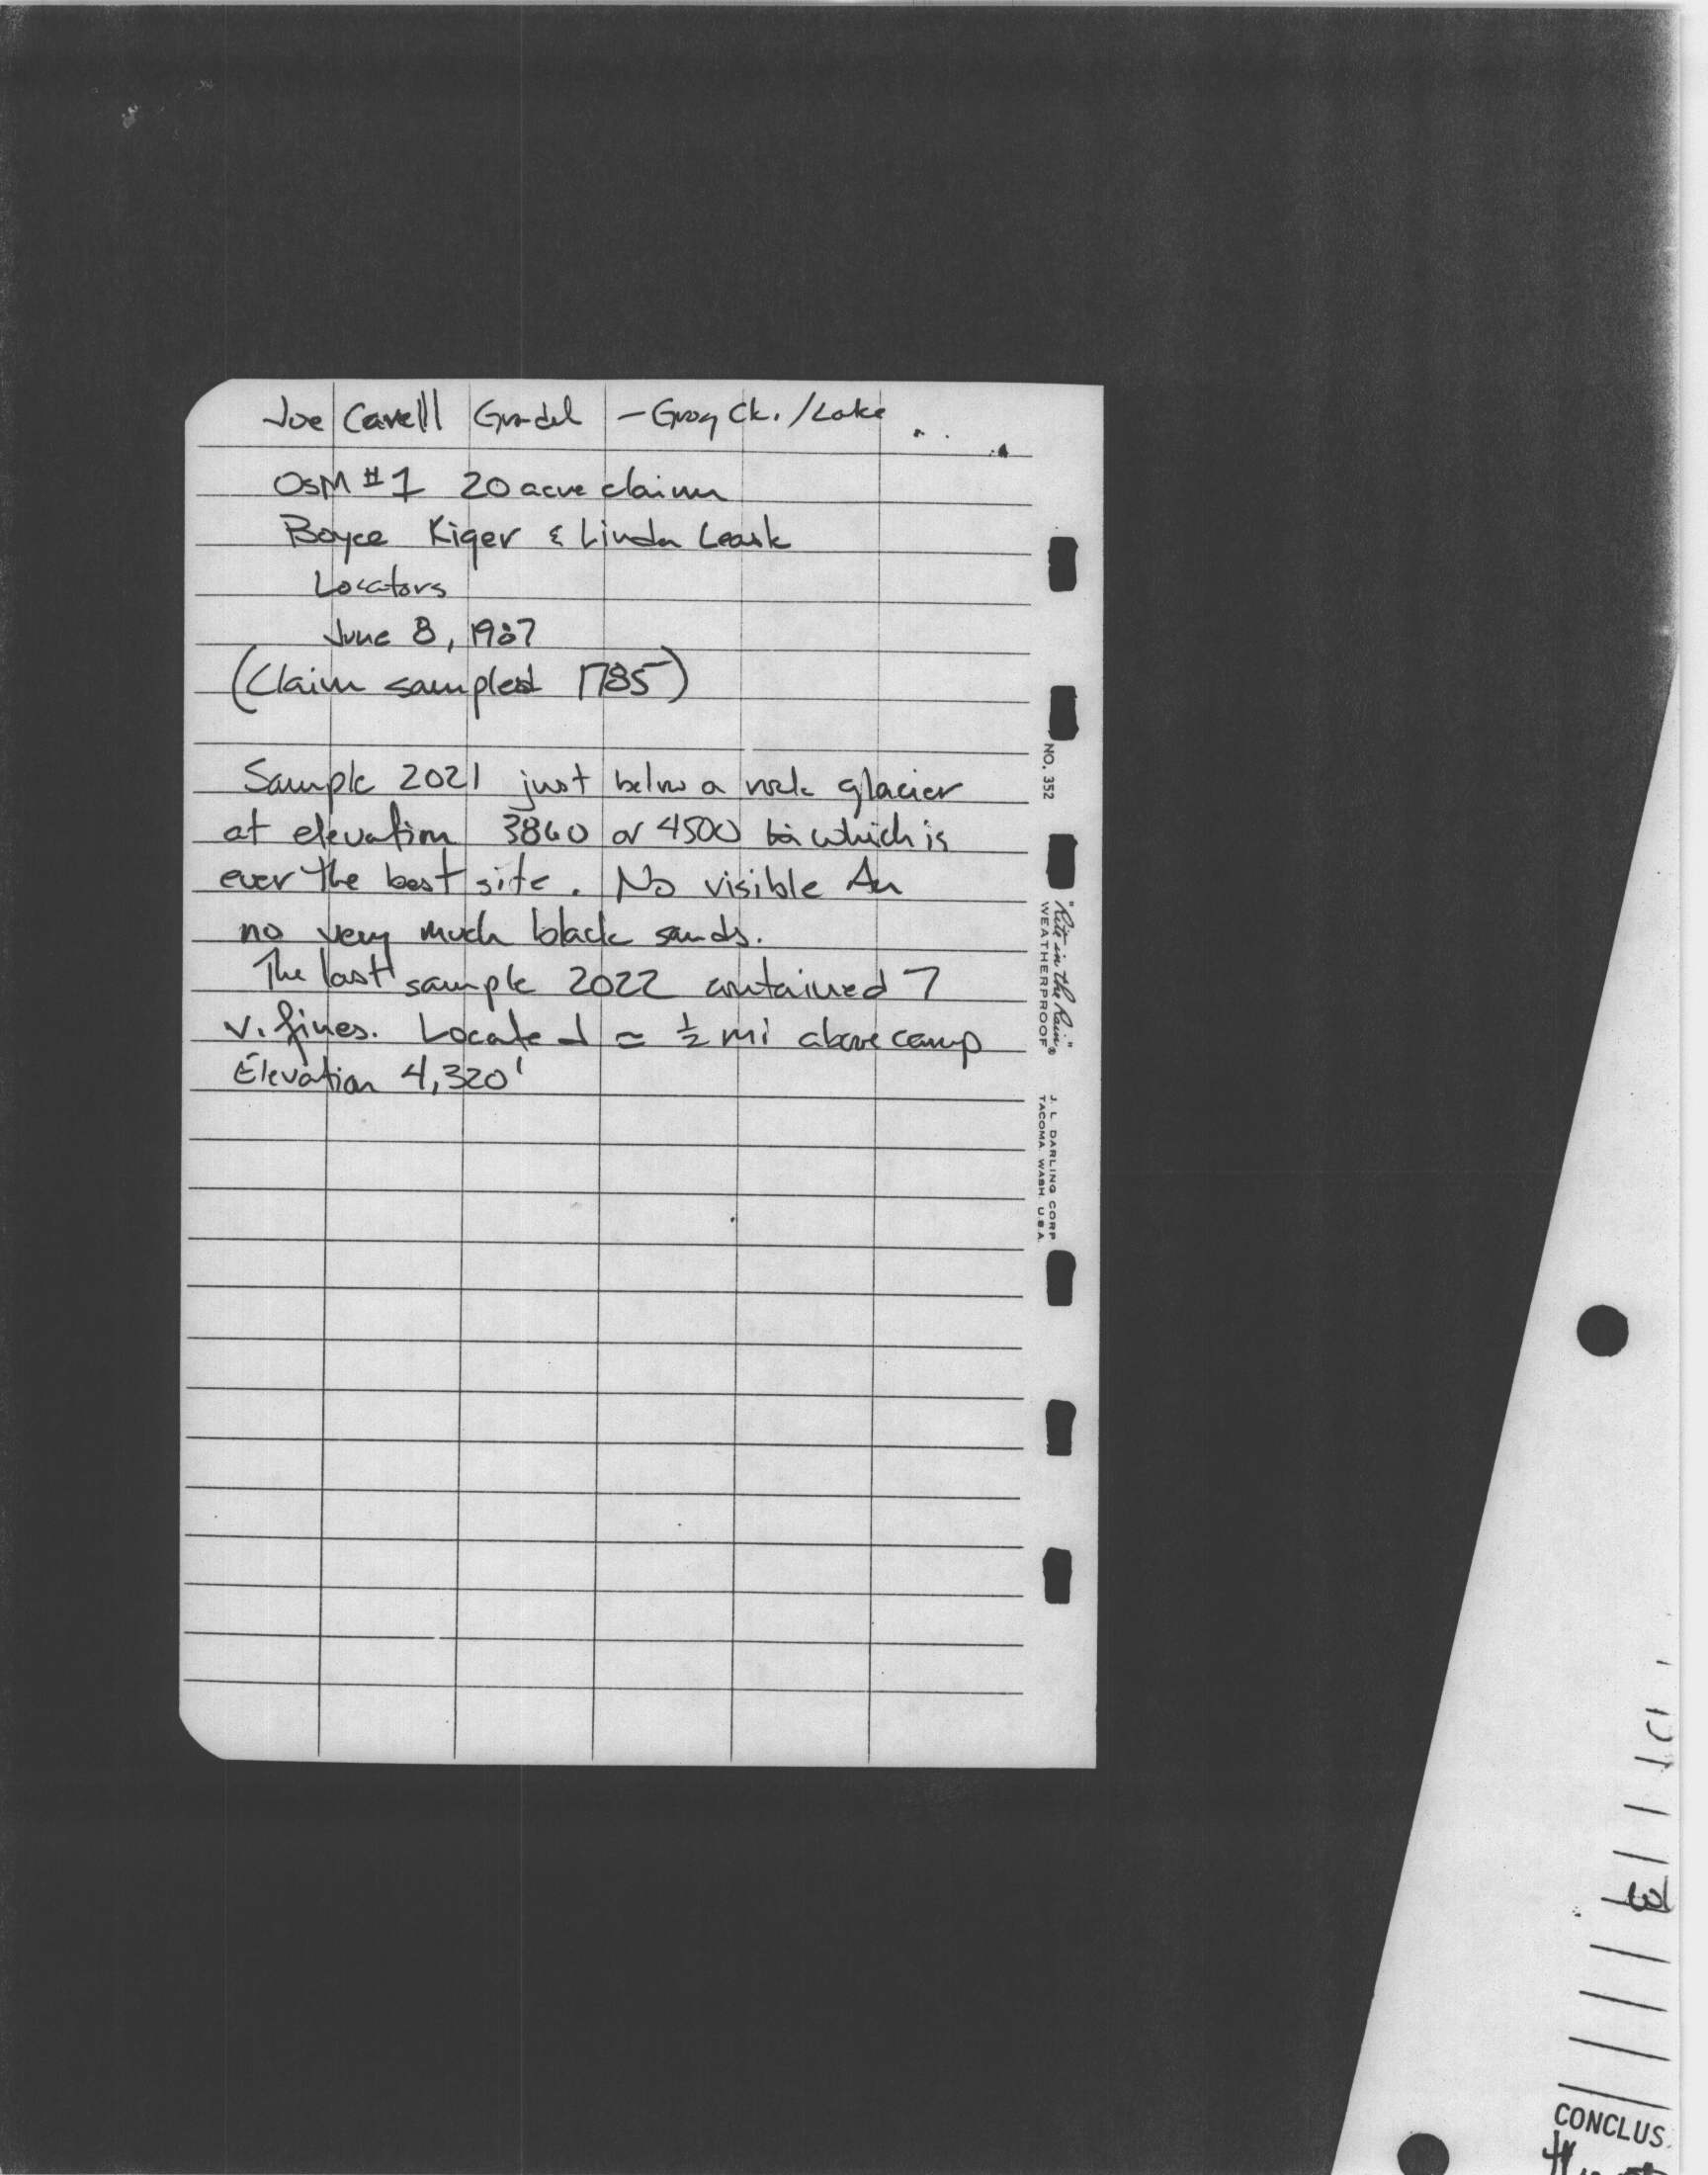 Joe Cavell Gradel - Grog Ck. / Lake
OSM #1 20 acre claim
Boyce Kiger & Linda Leask
Locators
June 8, 1987
(Claim sampled 1785)
Sample 2021 just below a rock glacier
at elevation 3860 or 4500 which is
ever the best site. No visible Au
no very much black sands.
The last sample 2022 contained 7
v. fines. Located ≃ ½ mi above camp
Elevation 4,320'
NO. 352
"Rite in the Rain"®
WEATHERPROOF
J. L. DARLING CORP
TACOMA, WASH. U.S.A.
CONCLUS